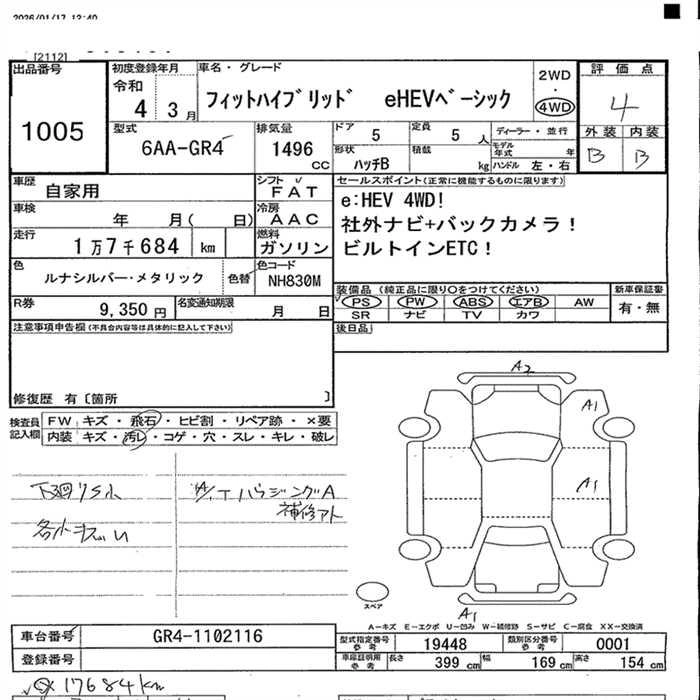 2026/01/17 13:40
[2112]
出品番号
1005
初度登録年月
令和
4 3月
車名・グレード
フィットハイブリッド eHEVベーシック
2WD
・
4WD
評価点
4
外装 内装
B B
型式
6AA-GR4
排気量
1496
CC
ドア 5
形状
ハッチB
定員 5 人
積載 kg
ディーラー・並行
モデル年式 年
ハンドル 左・右
車歴
自家用
シフト
FAT
車検
年 月( 日)
冷房
AAC
走行
1万7千684 km
燃料
ガソリン
色
ルナシルバー・メタリック
色替
色コード
NH830M
R券
9,350 円
名変通知期限
月 日
セールスポイント(正常に機能するものに限ります)
e:HEV 4WD!
社外ナビ+バックカメラ!
ビルトインETC!
装備品 (純正品に限り○をつけてください)
PS PW ABS エアB AW
SR ナビ TV カワ
新車保証書
有・無
後日品
注意事項申告欄(不具合内容等は具体的に記入して下さい)
修復歴 有〔箇所 〕
検査員
記入欄
FW キズ・飛石・ヒビ割・リペア跡・×要
内装 キズ・汚レ・コゲ・穴・スレ・キレ・破レ
下廻りS小
各小キズ
ハウジングA
補修アト
A2
A1
A1
A1
スペア
A-キズ E-エクボ U-凹み W-補修跡 S-サビ C-腐食 XX-交換済
車台番号 GR4-1102116
登録番号
型式指定番号
参考
19448
類別区分番号
参考
0001
車庫証明用
参考
長さ 399 cm 幅 169 cm 高さ 154 cm
17684km